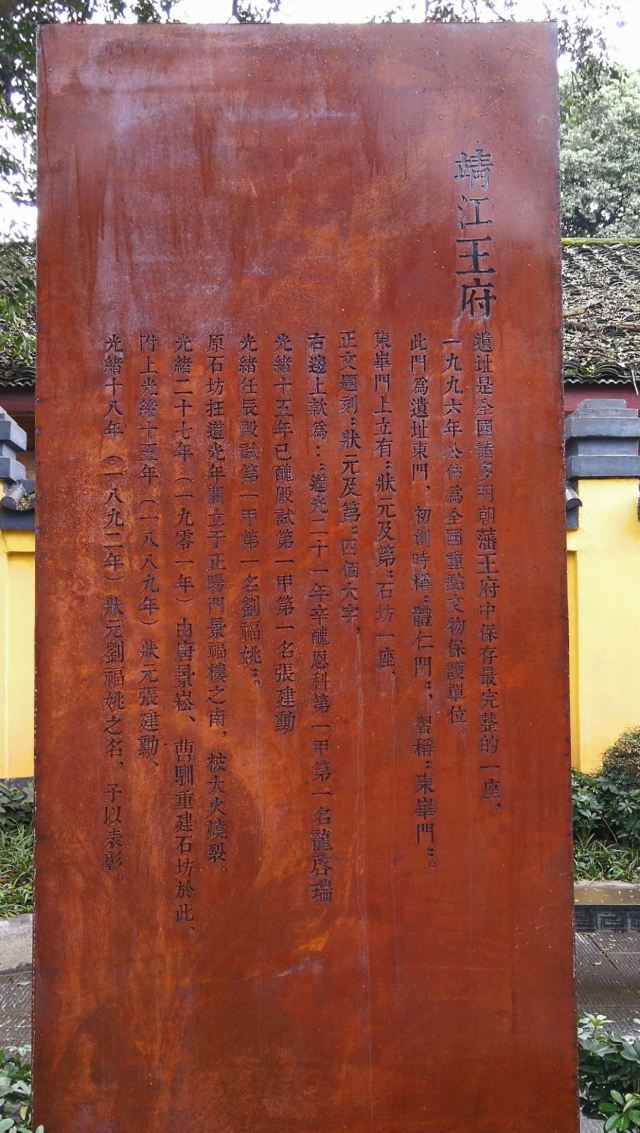 靖江王府
遺址是全國諸多明朝藩王府中保存最完整的一座，
一九九六年公佈爲全國重點文物保護單位。
此門爲遺址東門，初創時稱“體仁門”，習稱“東華門”。
東華門上立有“狀元及第”石坊一座、
正文題刻“狀元及第”四個大字，
右邊上款爲：“道光二十一年辛醜恩科第一甲第一名龍啓瑞
光緒十五年已醜殿試第一甲第一名張建勳
光緒任辰殿試第一甲第一名劉福姚”。
原石坊在道光年間立于正陽門景福樓之南，被大火燒裂。
光緒二十七年（一九零一年）由唐景崧、曹馴重建石坊於此、
附上光緒十五年（一八八九年）狀元張建勳、
光緒十八年（一八九二年）狀元劉福姚之名，予以表彰。